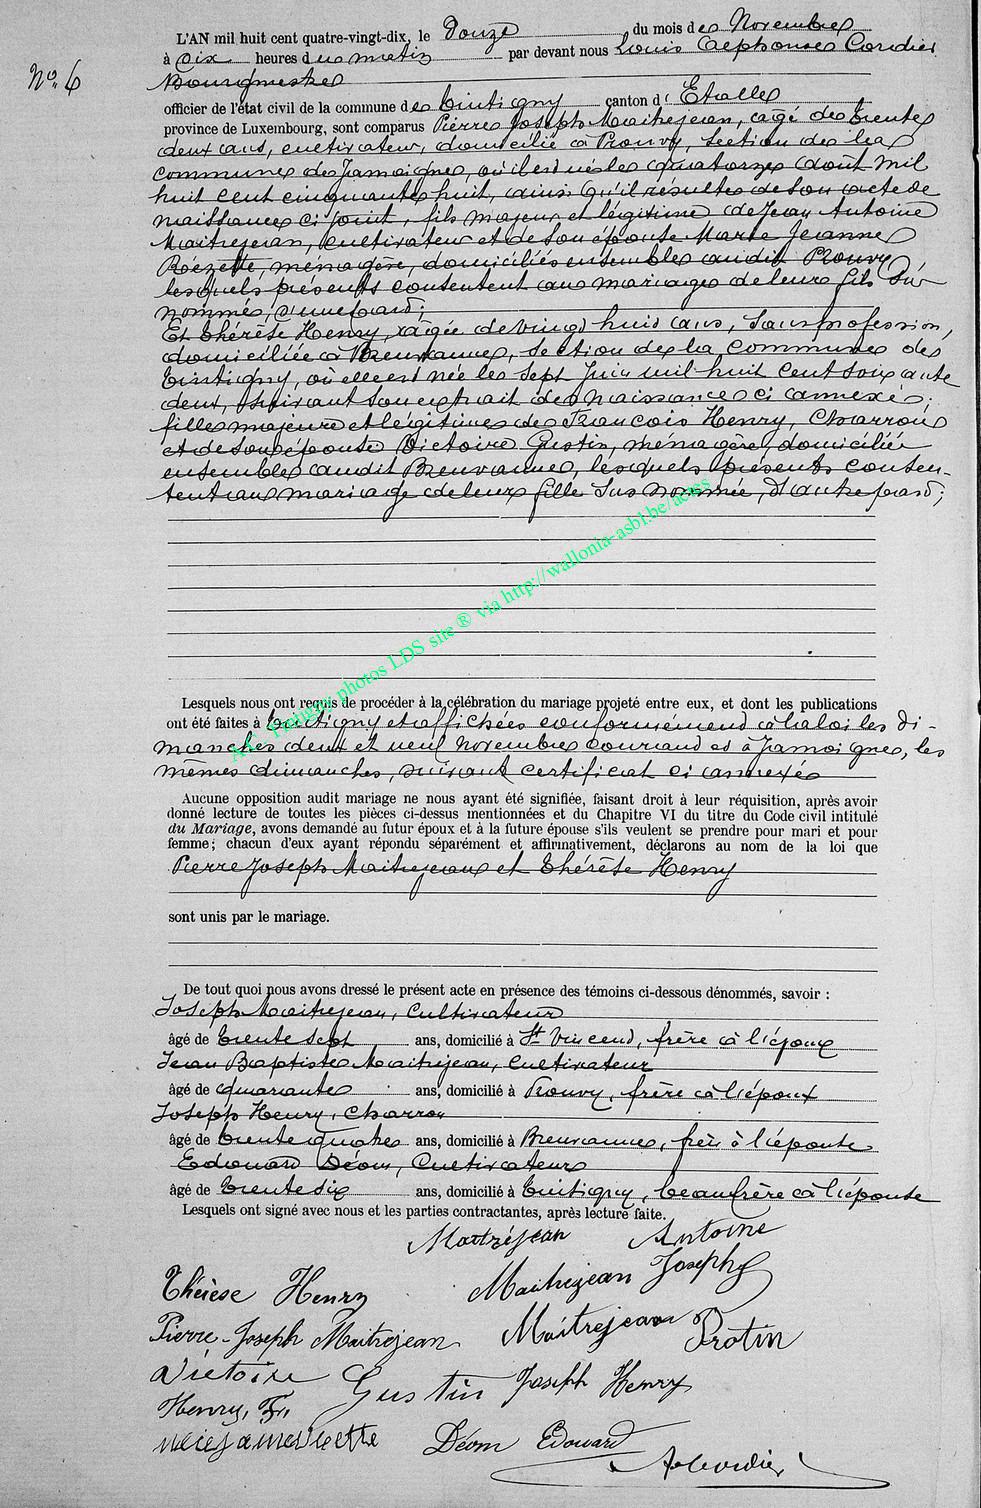 L'AN mil huit cent quatre-vingt-dix, le Douze du mois de Novembre
à dix heures du matin par devant nous Louis Alphonse Cordier
No. 6
Bourgmestre
officier de l'état civil de la commune de Tintigny canton d' Etalle
province de Luxembourg, sont comparus Pierre Joseph Maitrejean, âgé de trente
deux ans, cultivateur, domicilié à Prouvy, section de la
commune de Jamoigne, où il est né le quatorze août mil
huit cent cinquante huit, ainsi qu'il résulte de son acte de
naissance ci joint, fils majeur et légitime de Jean Antoine
Maitrejean, cultivateur et de son épouse Marie Jeanne
ménagère, domiciliés ensemble audit Prouvy
lesquels présents consentent au mariage de leur fils sus
nommé, d'une part;
Et Thérèse Henry, âgée de vingt huit ans, sans profession,
domiciliée à Breuvanne, section de la commune de
Tintigny, où elle est née le sept Juin mil huit cent soixante
deux, suivant son extrait de naissance ci annexé;
fille majeure et légitime de François Henry, Charron
et de son épouse Victoire Gustin, ménagère, domiciliés
ensemble audit Breuvanne, lesquels présents consen-
tent au mariage de leur fille sus nommée, d'autre part;
AC Tintigny photos LDS site ® via http://wallonia-asbl.be/actes
Lesquels nous ont requis de procéder à la célébration du mariage projeté entre eux, et dont les publications
ont été faites à Tintigny et affichées conformément à la loi les di-
manches deux et neuf Novembre courant et à Jamoigne, les
mêmes dimanches, suivant certificat ci annexé
Aucune opposition audit mariage ne nous ayant été signifiée, faisant droit à leur réquisition, après avoir
donné lecture de toutes les pièces ci-dessus mentionnées et du Chapitre VI du titre du Code civil intitulé
du Mariage, avons demandé au futur époux et à la future épouse s'ils veulent se prendre pour mari et pour
femme; chacun d'eux ayant répondu séparément et affirmativement, déclarons au nom de la loi que
Pierre Joseph Maitrejean et Thérèse Henry
sont unis par le mariage.
De tout quoi nous avons dressé le présent acte en présence des témoins ci-dessous dénommés, savoir :
Joseph Maitrejean, Cultivateur
âgé de trente sept ans, domicilié à St Vincent, frère à l'époux
Jean Baptiste Maitrejean, Cultivateur
âgé de quarante ans, domicilié à Prouvy, frère à l'époux
Joseph Henry, Charron
âgé de trente quatre ans, domicilié à Breuvanne, frère à l'épouse
Edouard Déom, Cultivateur
âgé de trente six ans, domicilié à Tintigny, beaufrère à l'épouse
Lesquels ont signé avec nous et les parties contractantes, après lecture faite.
Maitréjean Antoine
Thérèse Henry Maitrejean Joseph
Pierre-Joseph Maitrejean Maitrejean Protin
Victoire Gustin Joseph Henry
Henry, Fr,
Déom Edouard
ACordier